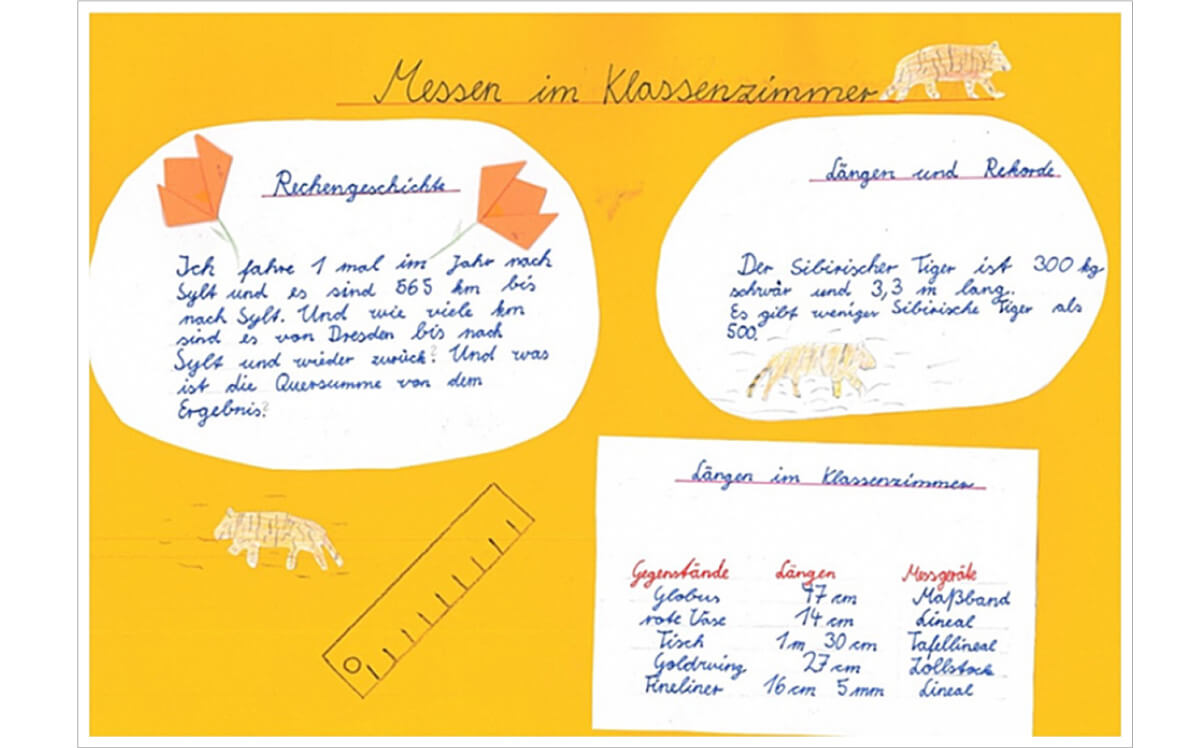 Messen im Klassenzimmer
Rechengeschichte
Ich fahre 1 mal im Jahr nach
Sylt und es sind 565 km bis
nach Sylt. Und wie viele km
sind es von Dresden bis nach
Sylt und wieder zurück? Und was
ist die Quersumme von dem
Ergebnis?
Längen und Rekorde
Der Sibirischer Tiger ist 300 kg
schwär und 3,3 m lang.
Es gibt weniger Sibirische Tiger als
500.
Längen im Klassenzimmer
Gegenstände Längen Messgeräte
Globus cm Maßband
rote Vase 14 cm Lineal
Tisch 1m 30 cm Tafellineal
27 cm Zollstock
Fineliner 16 cm 5 mm Lineal
0